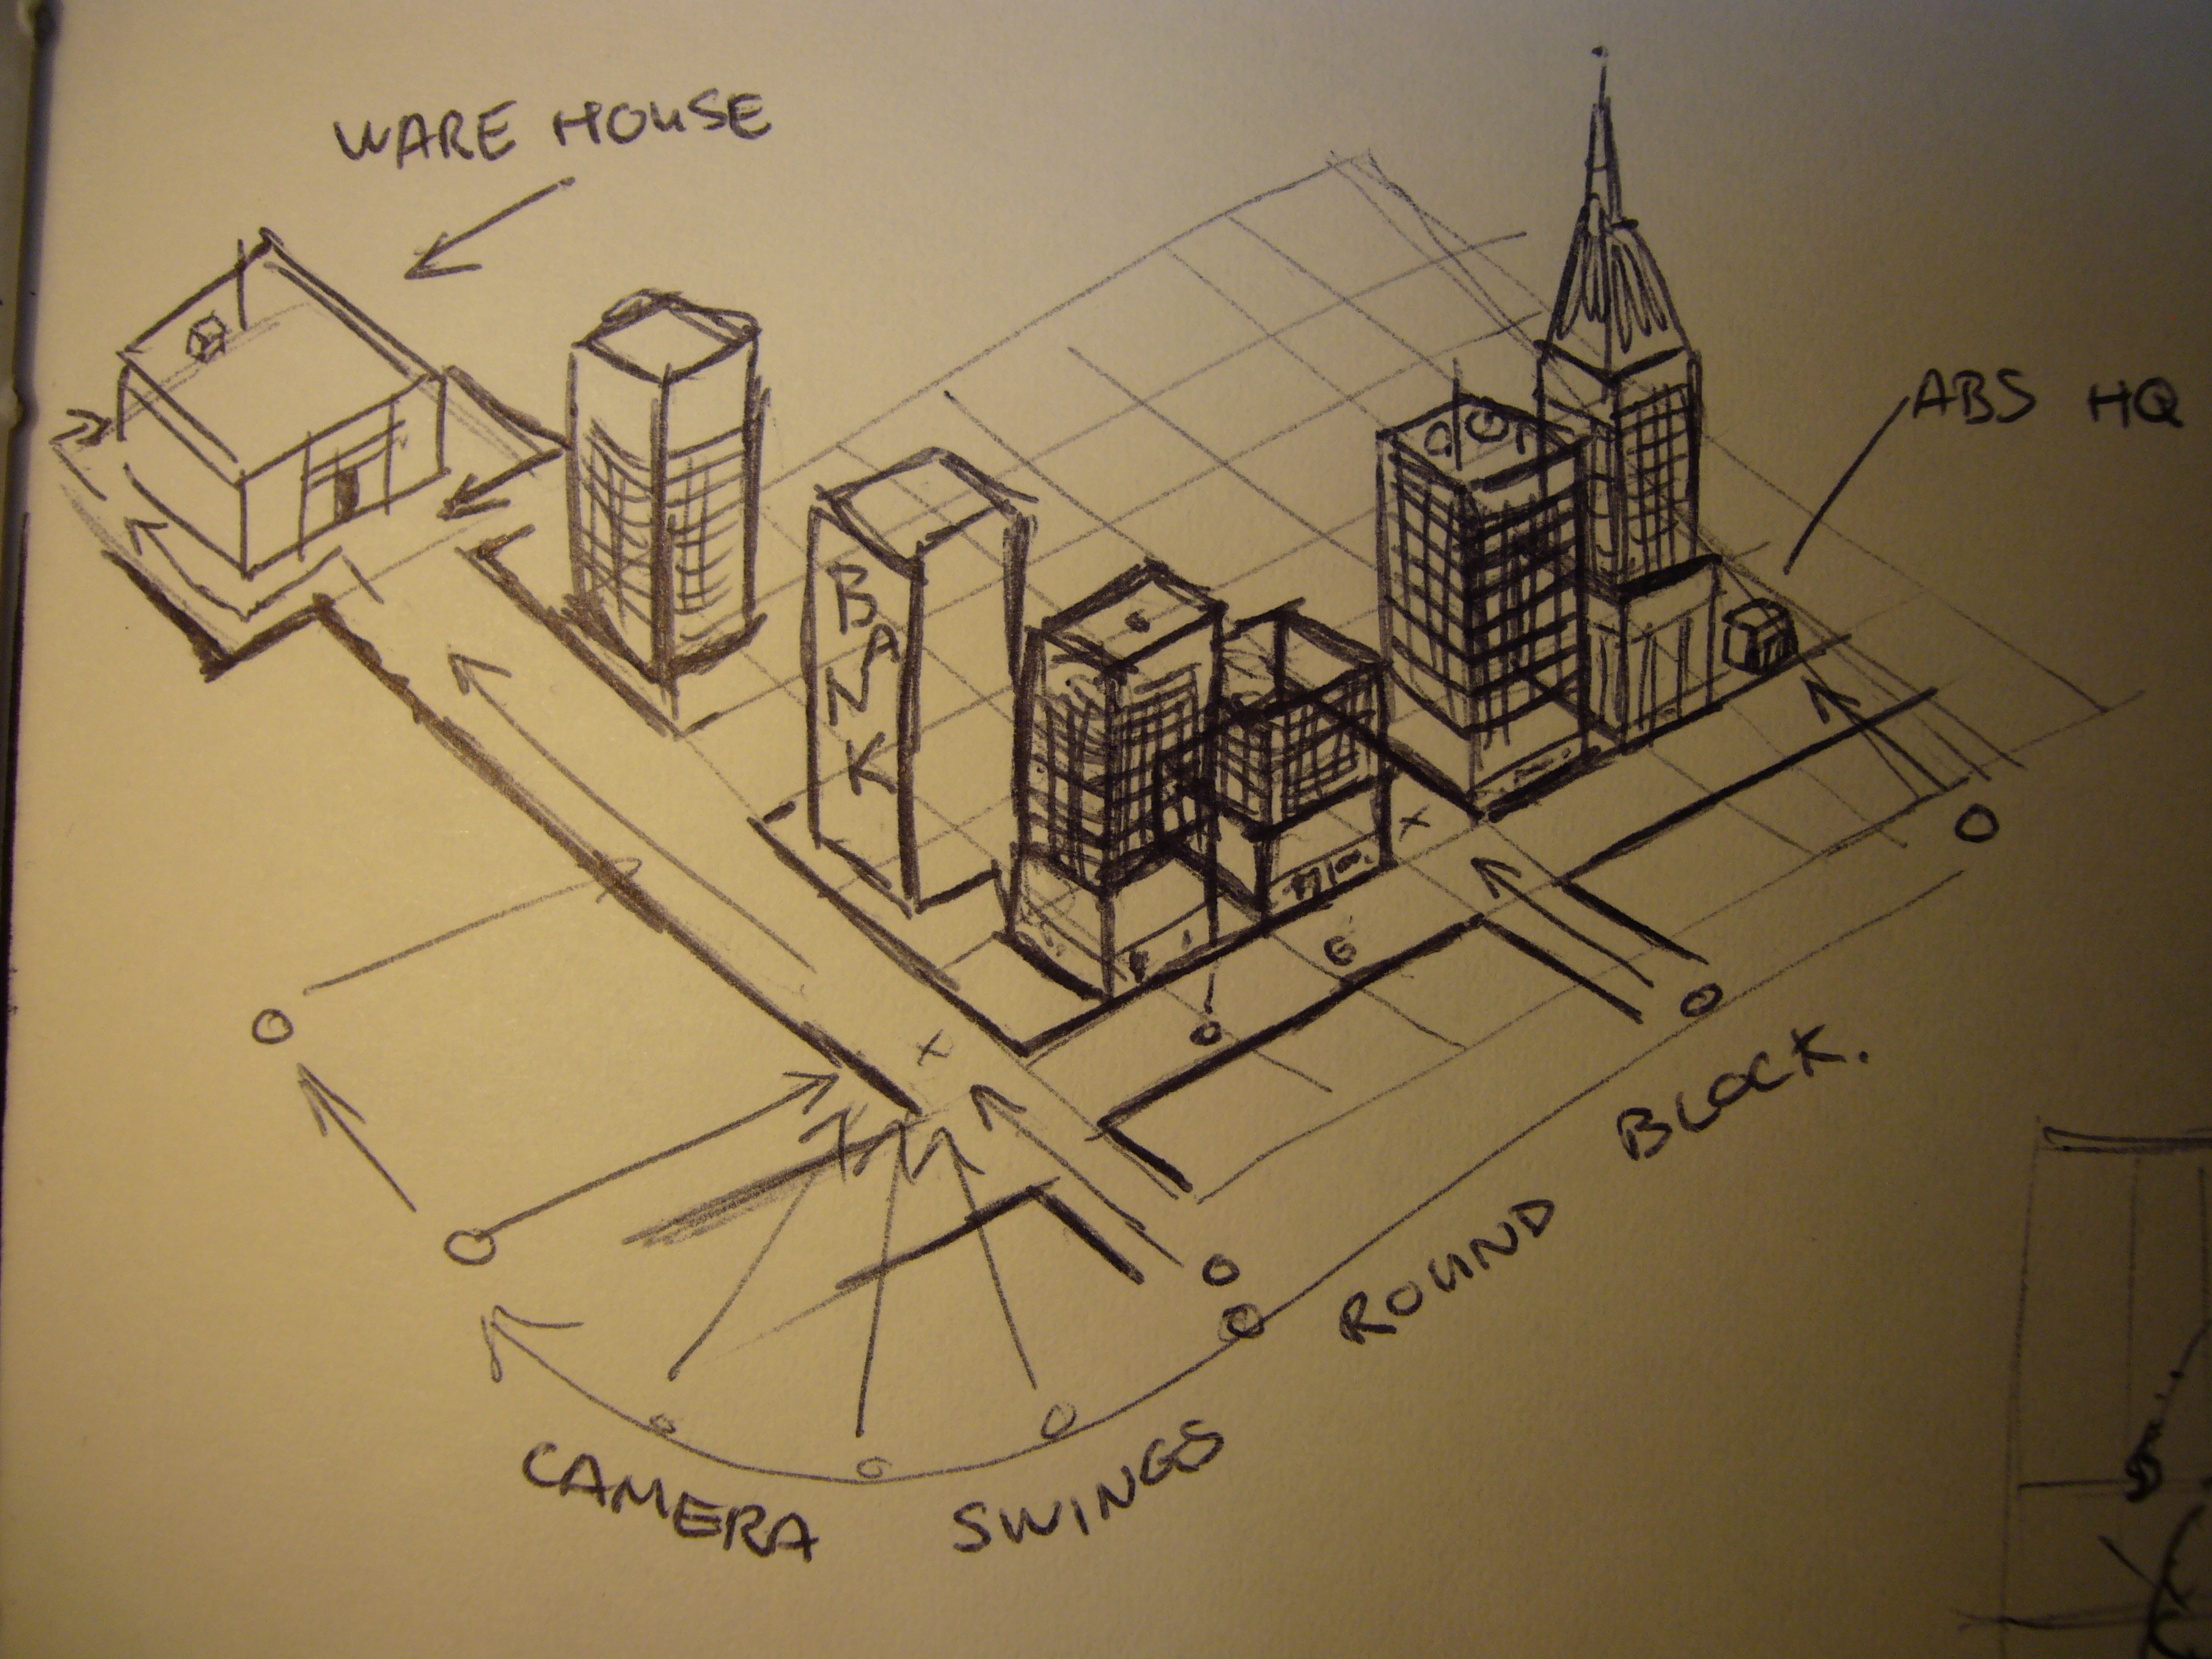 WARE HOUSE
ABS HQ
BANK
CAMERA SWINGS ROUND BLOCK.